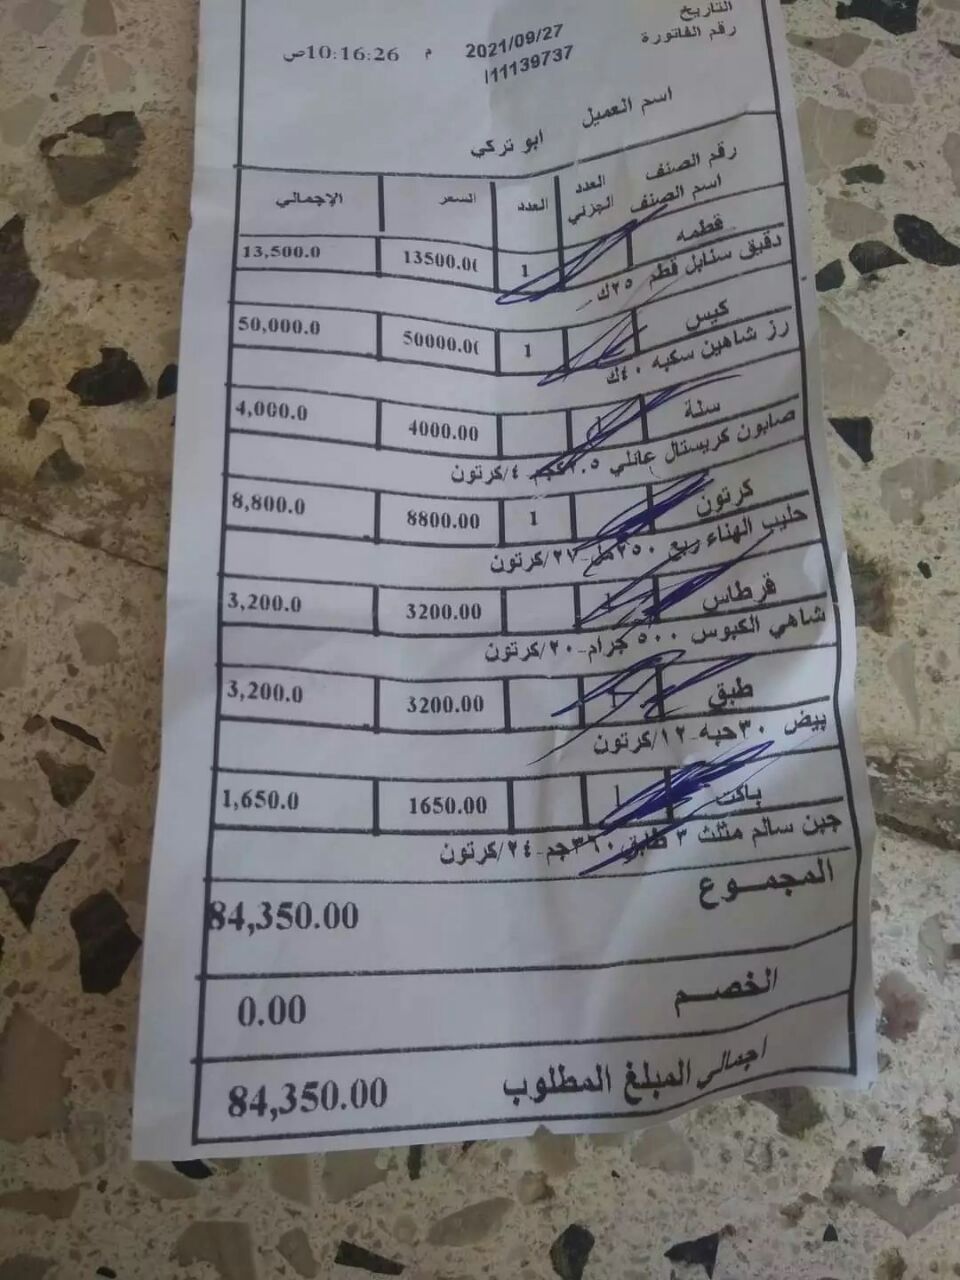 التاريخ 2021/09/27 م 10:16:26ص
رقم الفاتورة 11139737
اسم العميل ابو تركي
رقم الصنف اسم الصنف العدد الجزئي العدد السعر الإجمالي
قطمه 1 13500.00 13,500.0
دقيق سنابل قطم ٢٥ك
كيس 1 50000.00 50,000.0
رز شاهين سكبه ٤٠ك
سلة 1 4000.00 4,000.0
صابون كريستال عائلي ٤/كرتون
كرتون 1 8800.00 8,800.0
حليب الهناء ربع ٢٥٠مل-٢٧/كرتون
قرطاس 1 3200.00 3,200.0
شاهي الكبوس ٥٠٠ جرام-٢٠/كرتون
طبق 1 3200.00 3,200.0
بيض ٣٠حبه-١٢/كرتون
باكت 1 1650.00 1,650.0
جبن سالم مثلث ٣ طابق ٣٦٠جم-٢٤/كرتون
المجموع 84,350.00
الخصم 0.00
اجمالي المبلغ المطلوب 84,350.00